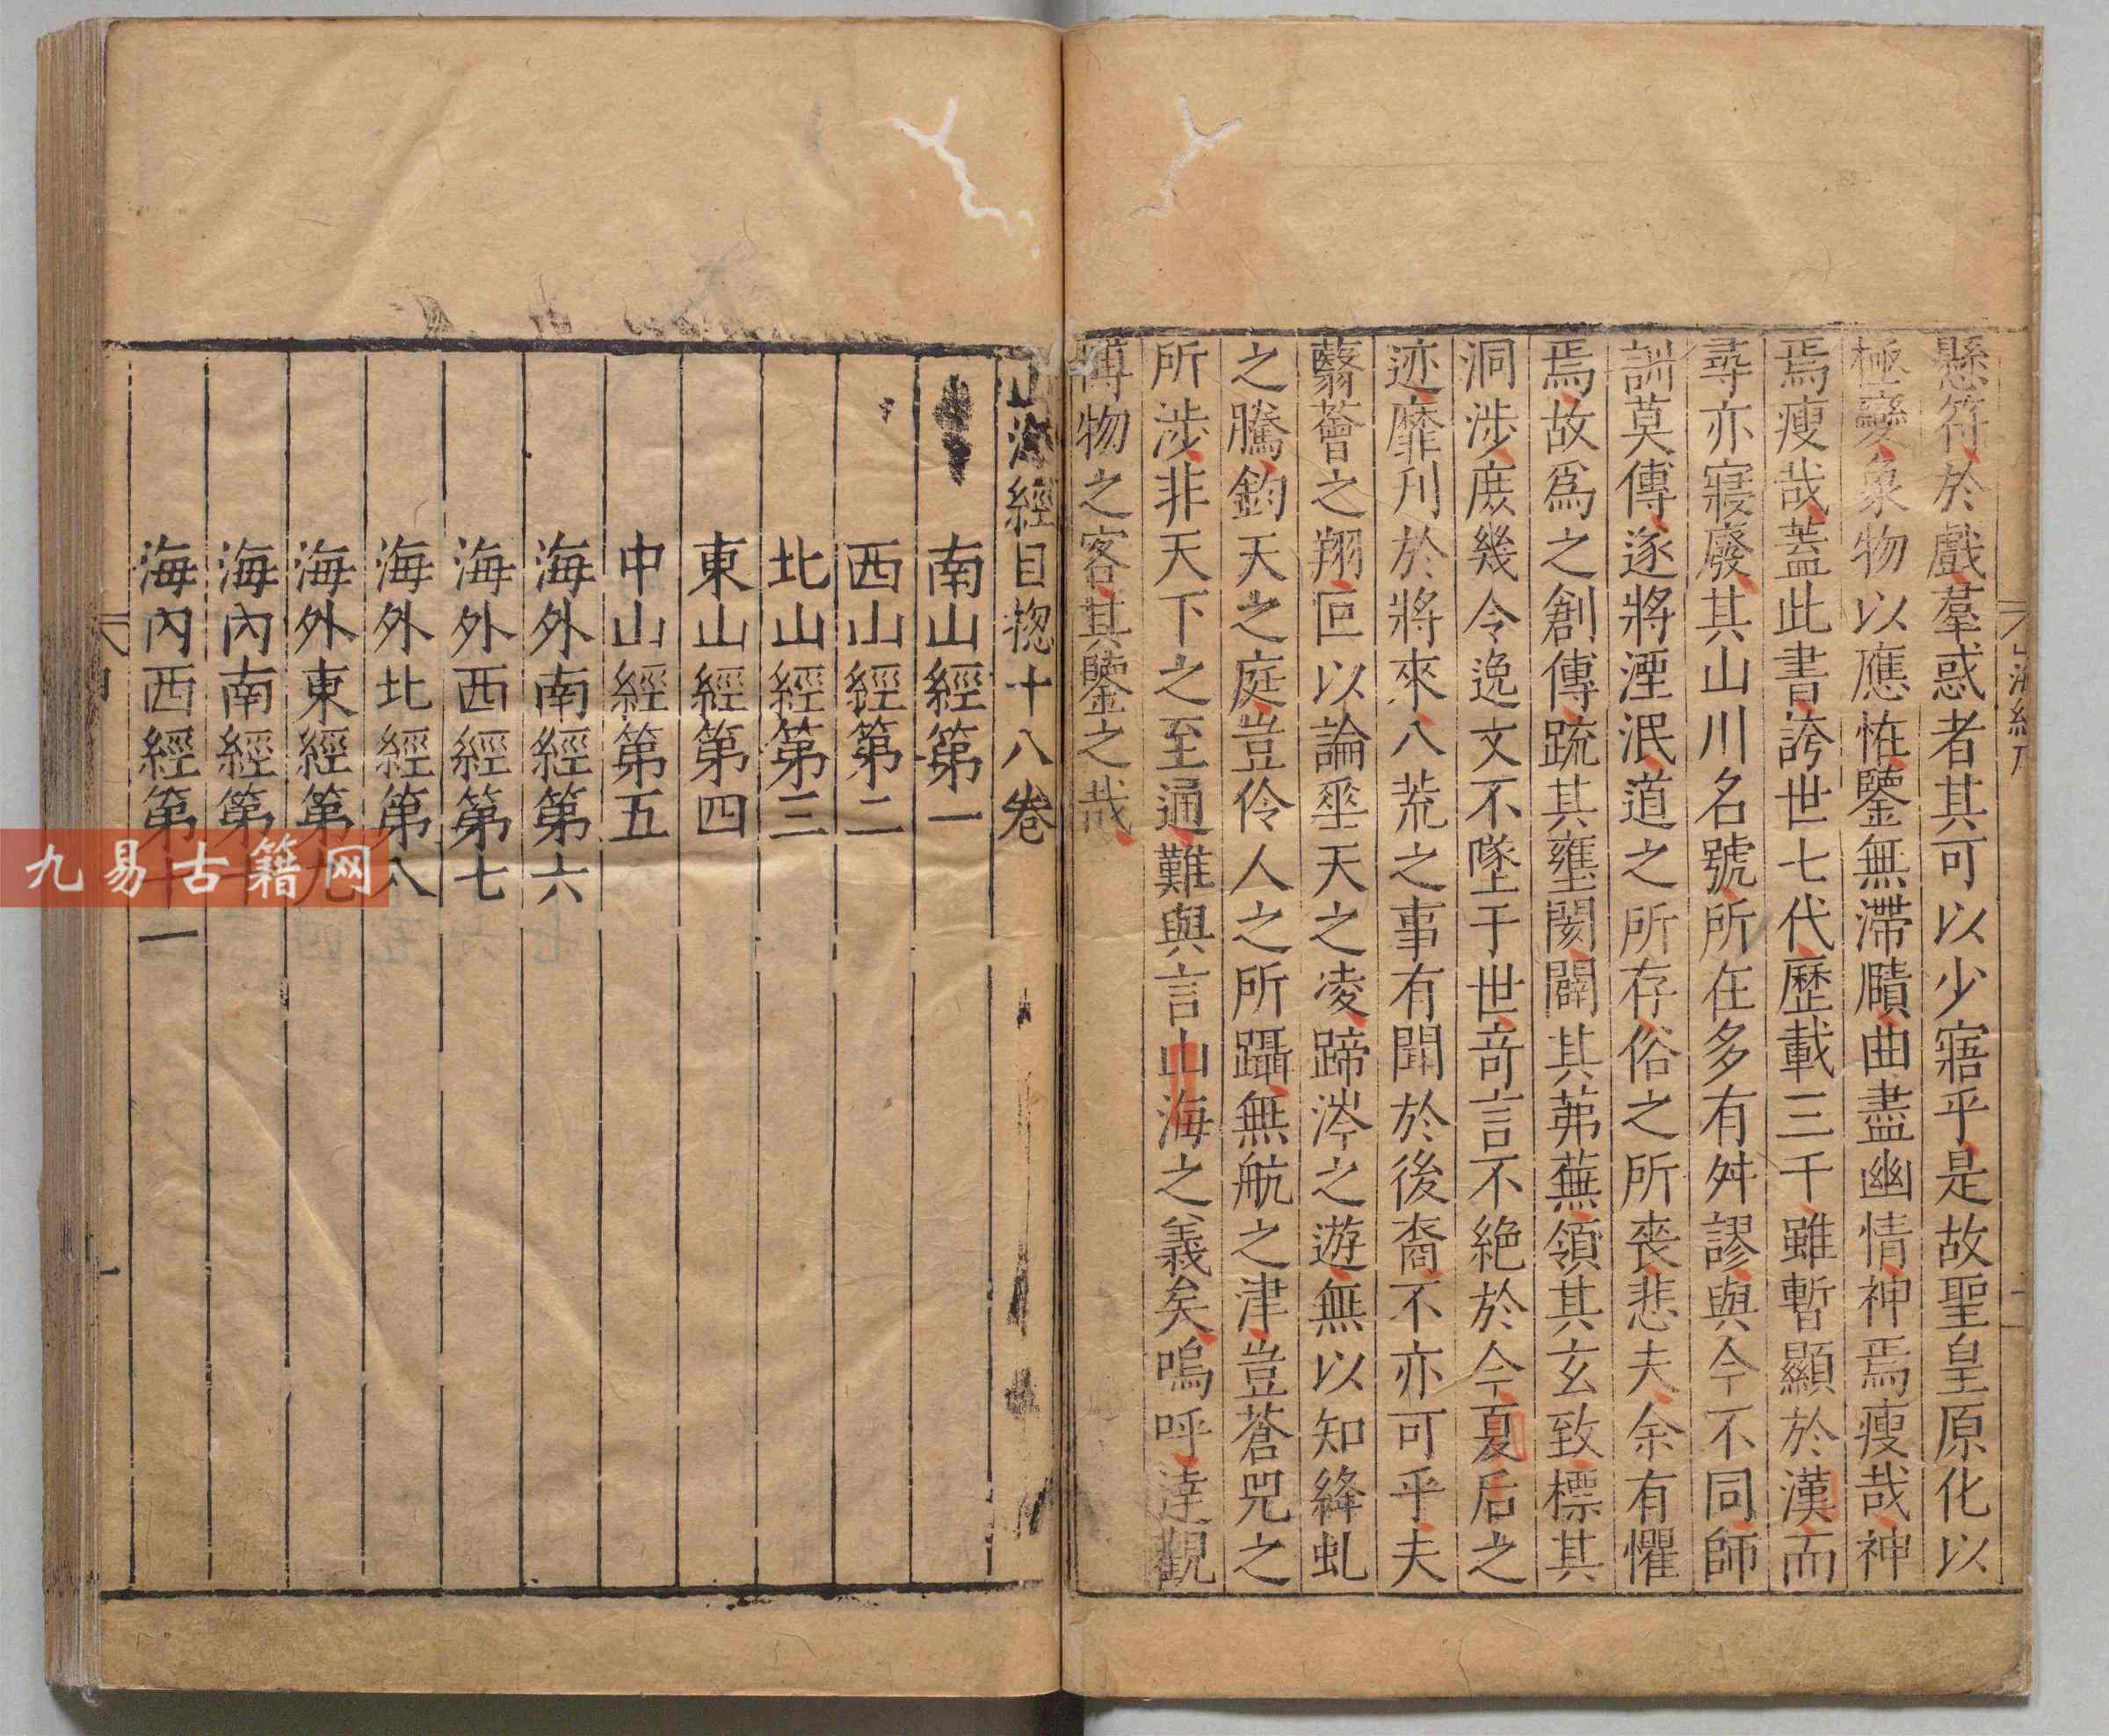 懸符於戲羣惑者其可以少寤乎是故聖皇原化以
極變象物以應恠鑒無滯賾曲盡幽情神焉廋哉神
焉廋哉蓋此書誇世七代歷載三千雖暫顯於漢而
尋亦寢廢其山川名號所在多有舛謬與今不同師
訓莫傳遂將湮泯道之所存俗之所喪悲夫余有懼
焉故爲之創傳疏其壅閡闢其茀蕪領其玄致標其
洞涉庻幾令逸文不墜于世竒言不絶於今夏后之
迹靡刋於將來八荒之事有聞於後裔不亦可乎夫
蘙薈之翔叵以論垂天之凌蹄涔之遊無以知絳虬
之騰鈞天之庭豈伶人之所躡無航之津豈蒼兕之
所涉非天下之至通難與言山海之義矣嗚呼達觀
博物之客其鑒之哉
山海經目揔十八卷
南山經第一
西山經第二
北山經第三
東山經第四
中山經第五
海外南經第六
海外西經第七
海外北經第八
海外東經第九
海內南經第十
海內西經第十一
九易古籍网